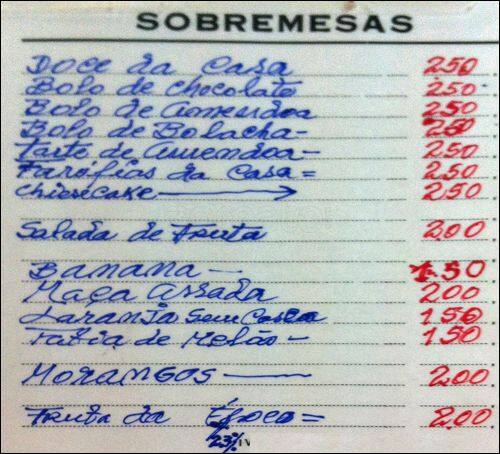 SOBREMESAS
Doce da Casa 250
Bolo de chocolate 250
Bolo de Amendoa 250
Bolo de Bolacha - 250
Tarte de Amendoa - 250
Farófias da Casa = 250
chiesecake 250
Salada de Fruta 200
Banana - 150
Maça Assada 200
Laranja Sem Casca 150
Fatia de Melão - 150
Morangos 200
Fruta da Época = 200
23%